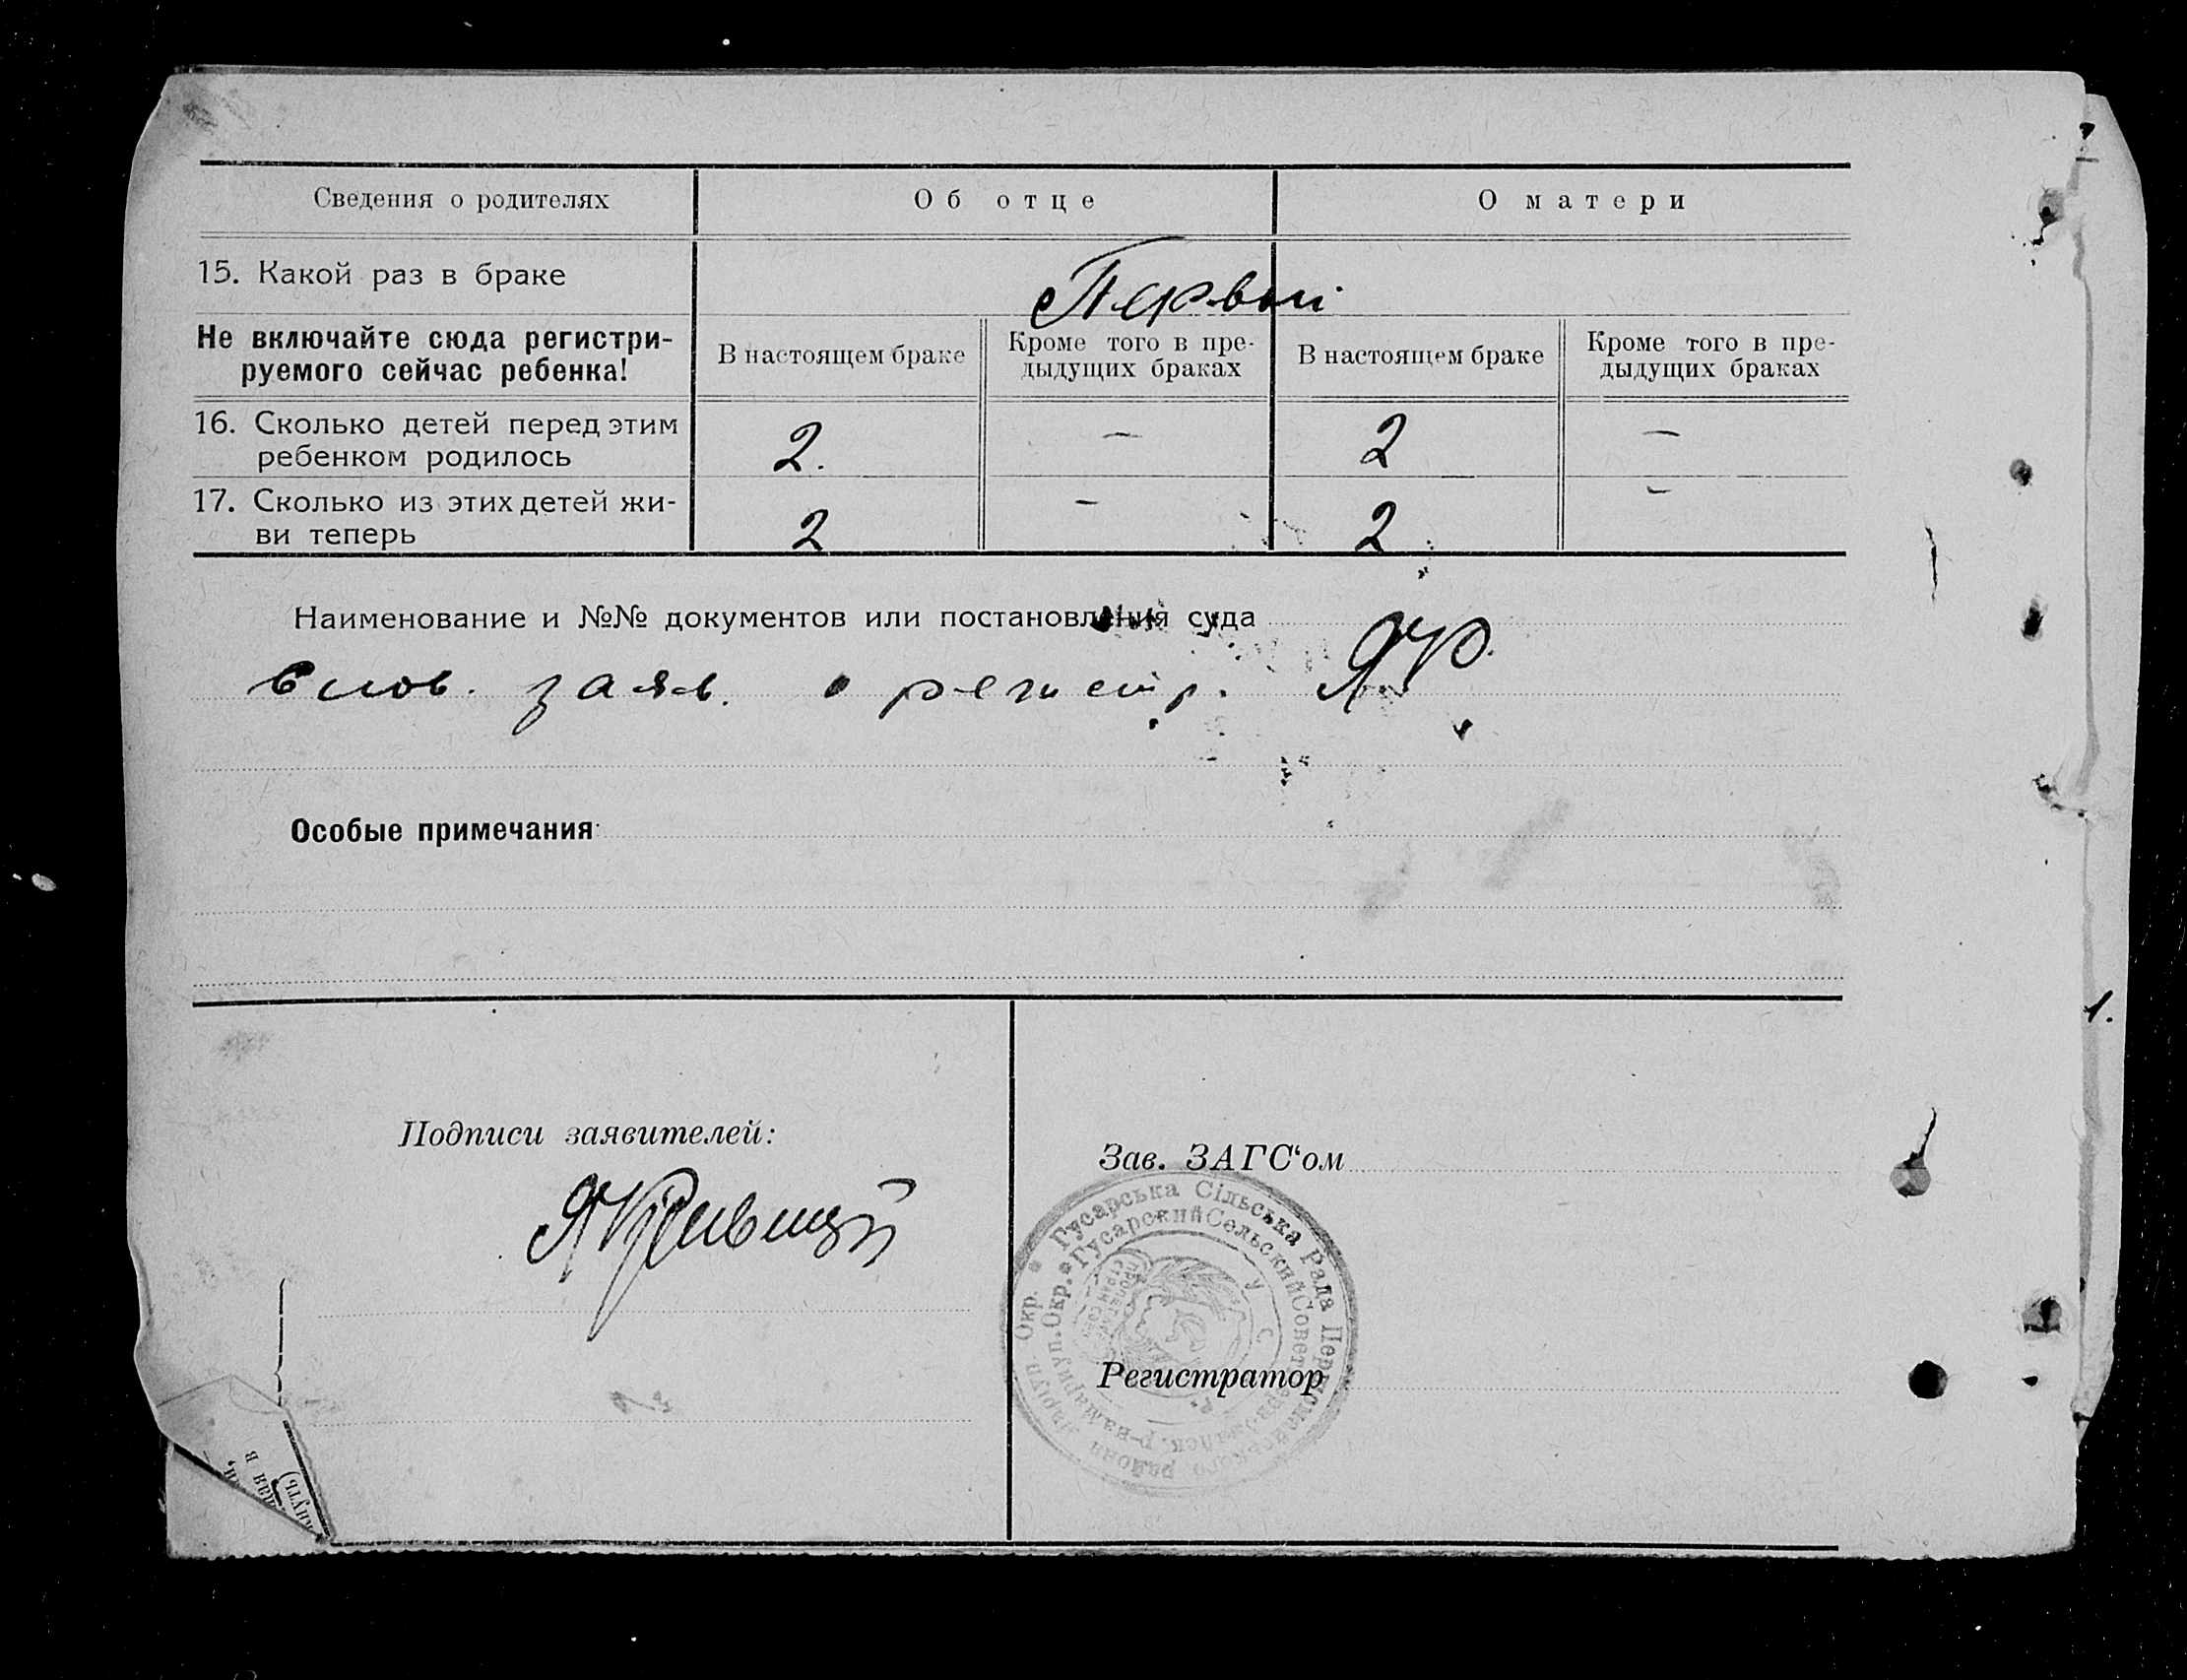 Сведения о родителях
Об отце
О матери
15. Какой раз в браке
Первый
Не включайте сюда регистри-
руемого сейчас ребенка!
В настоящем браке
Кроме того в пре-
дыдущих браках
В настоящем браке
Кроме того в пре-
дыдущих браках
16. Сколько детей перед этим
ребенком родилось
2.
—
2
—
17. Сколько из этих детей жи-
ви теперь
2
—
2
—
Наименование и №№ документов или постановления суда
слов. заяв. о регистр.
Особые примечания
Подписи заявителей:
Зав. ЗАГС‘ом
Регистратор
Гусарська Сільська Рада Першотравенського района Маріуп. Окр.
Гусарский Сельский Совет р-на Мариуп. Окр.
1.